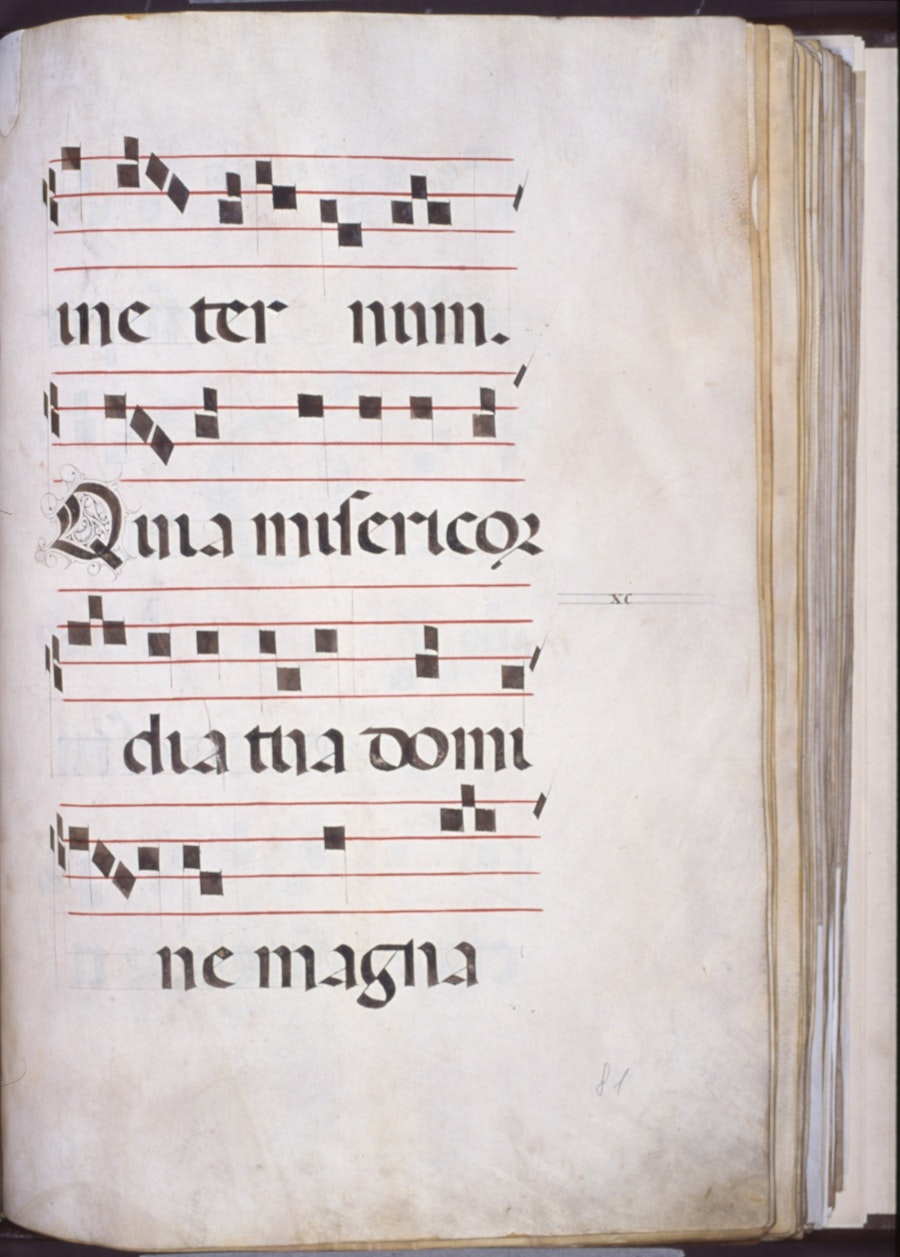 ine ter num.
Quia misericor
xc
dia tua domi
ne magna
81